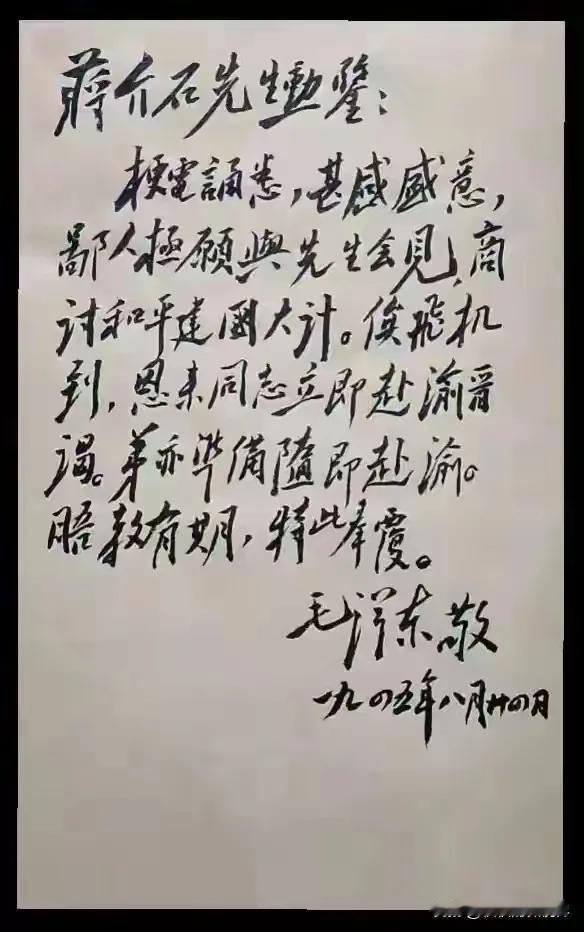 蔣介石先生勳鑒：
梗電誦悉，甚感盛意，
鄙人極願與先生会見，商
讨和平建國大计。俟飛机
到，恩来同志立即赴渝晋
谒。弟亦準備隨即赴渝。
晤教有期，特此奉覆。
毛泽东敬
一九四五年八月廿四日